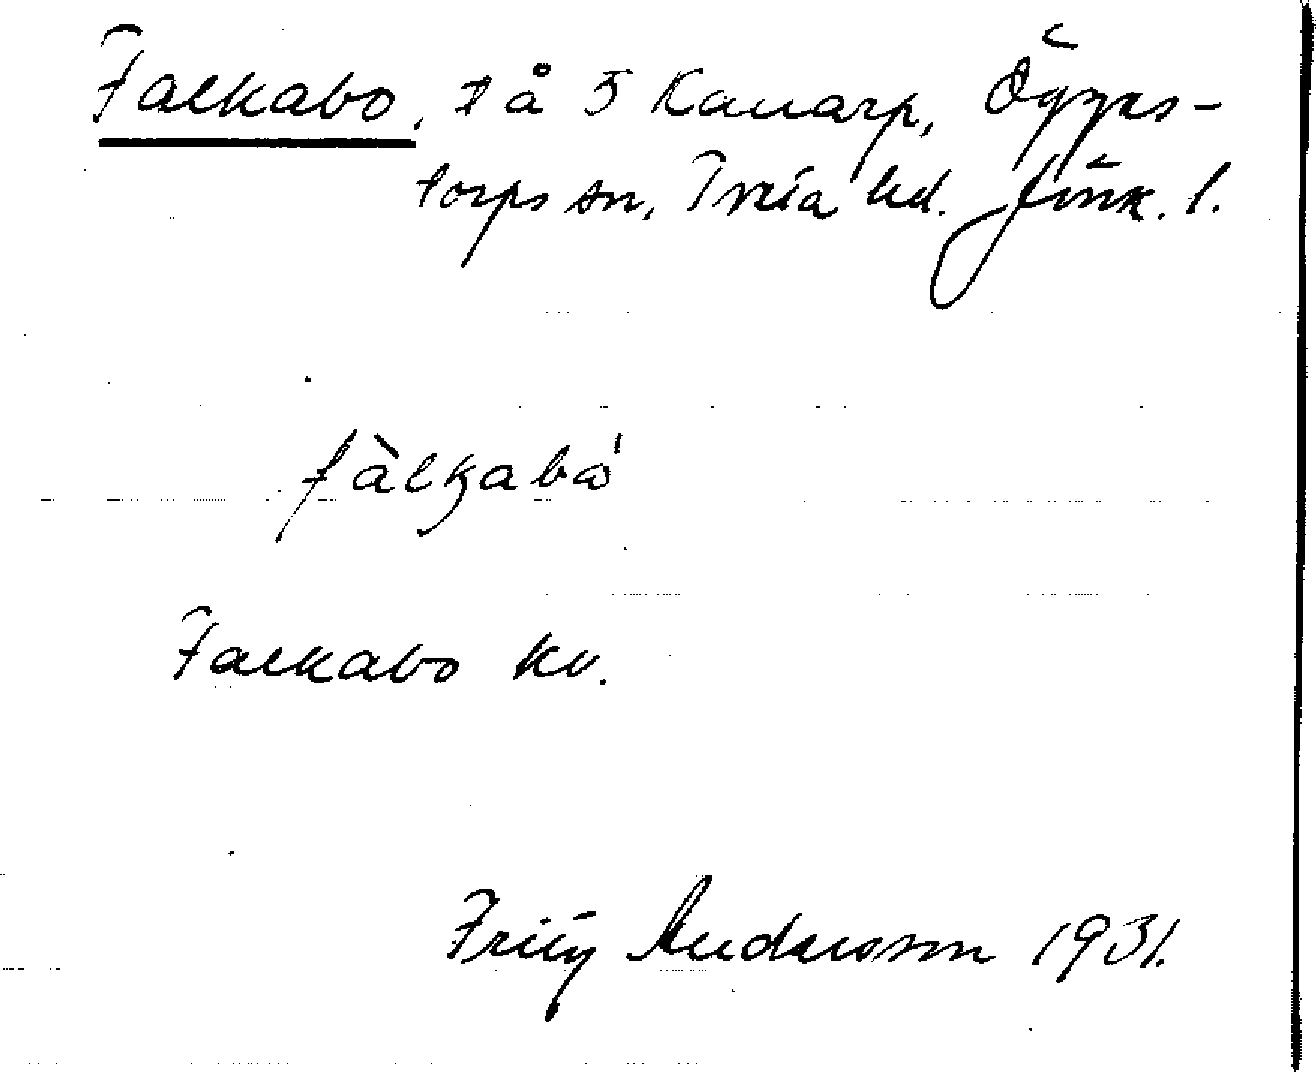 Falkabo, I å 5 Kallarp, Ögges-
torps sn, Tveta hd. Jönk. l.
fàlkabo'
Falkabo kv.
Fritz Andersson 1931.